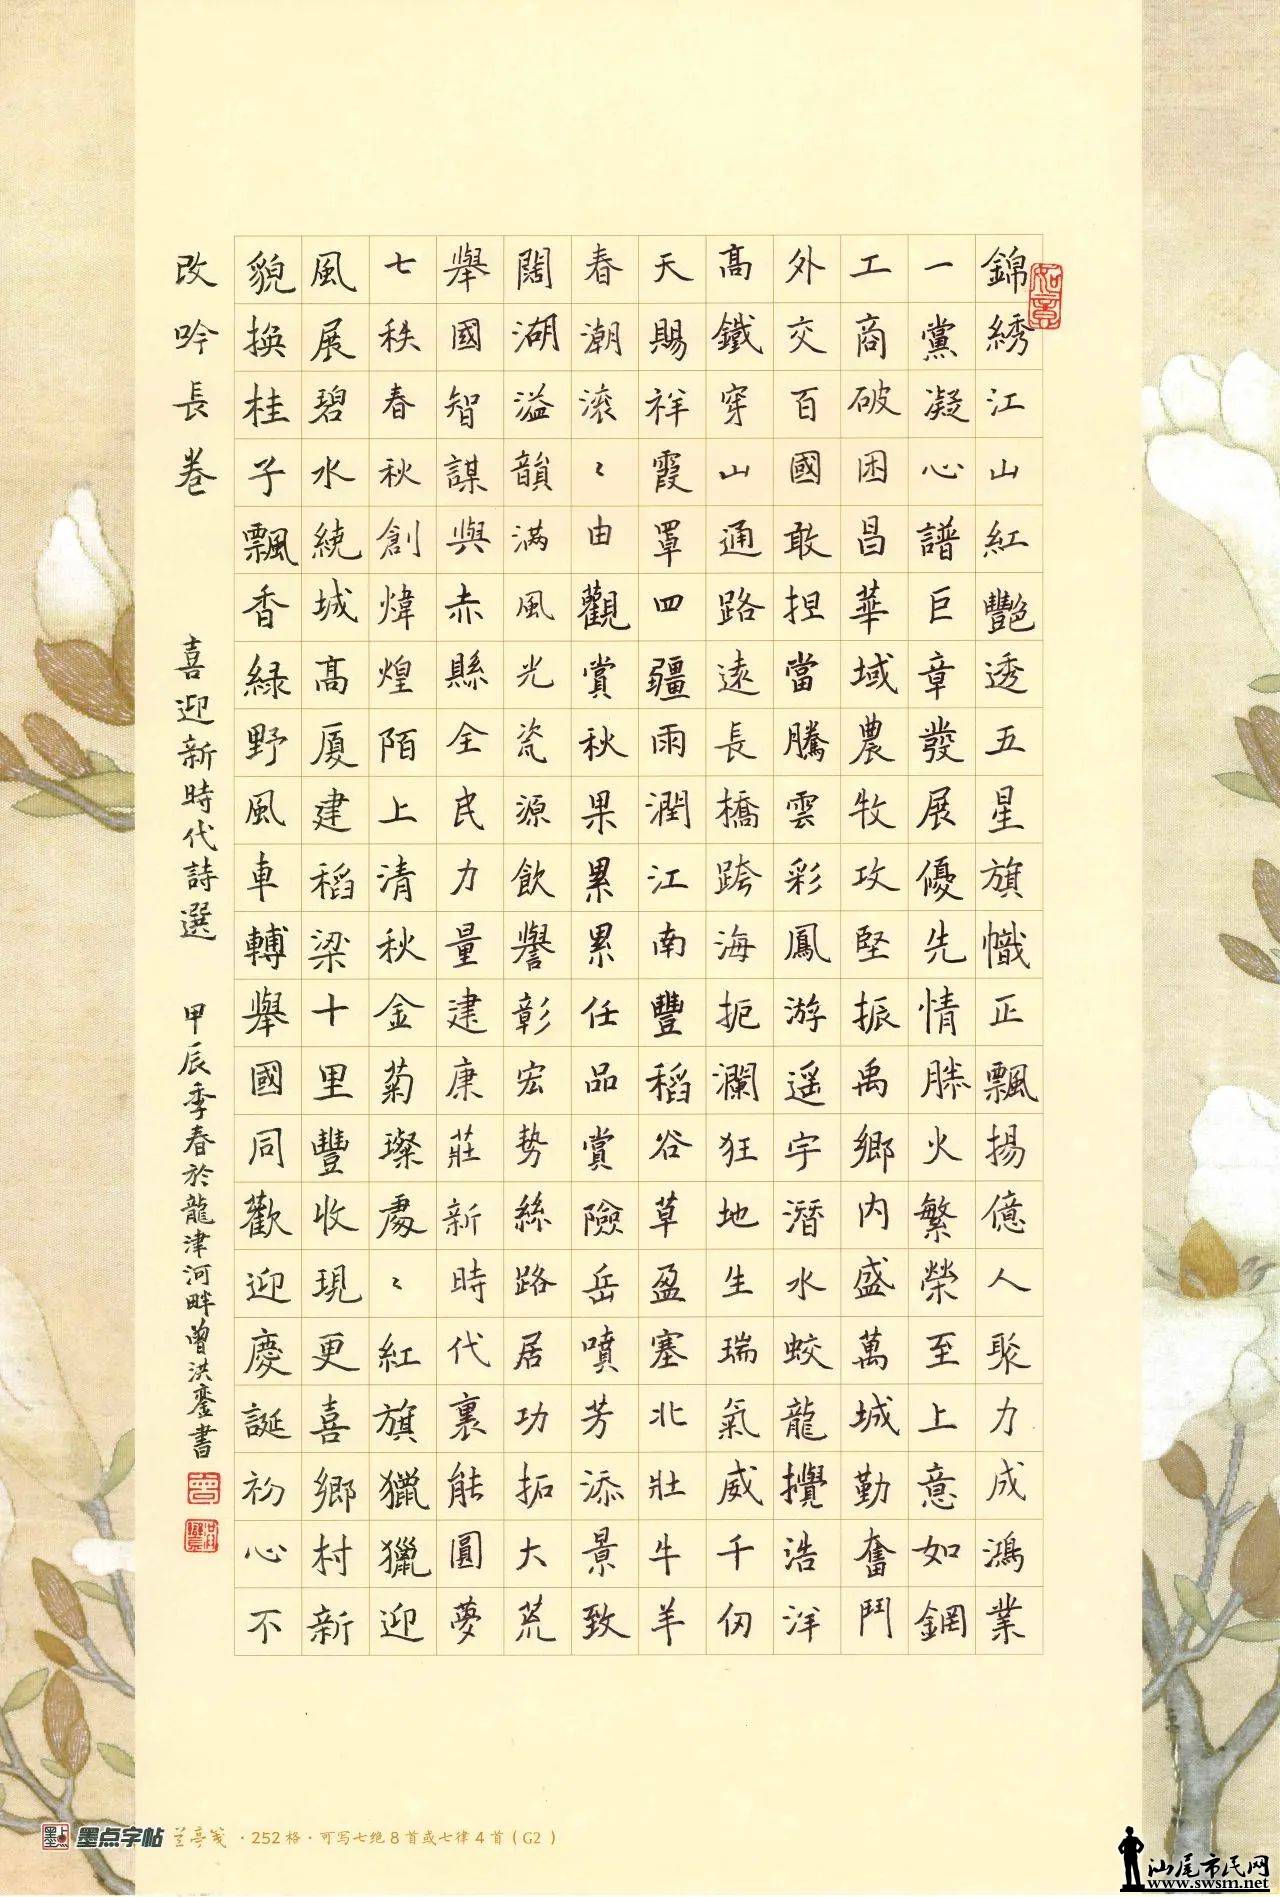 錦綉江山紅艷透五星旗幟正飄揚億人聚力成鴻業
一黨凝心譜巨章發展優先情勝火繁榮至上意如鋼
工商破困昌華域農牧攻堅振禹鄉内盛萬城勤奮鬥
外交百國敢担當騰雲彩鳳游遥宇潛水蛟龍攪浩洋
高鐵穿山通路遠長橋跨海扼瀾狂地生瑞氣威千仞
天賜祥霞罩四疆雨潤江南豐稻谷草盈塞北壯牛羊
春潮滚〻由觀賞秋果累累任品賞險岳噴芳添景致
闊湖溢韻满風光瓷源飲譽彰宏势絲路居功拓大荒
舉國智謀與赤縣全民力量建康莊新時代裏能圓夢
七秩春秋創煒煌陌上清秋金菊璨處〻紅旗獵獵迎
風展碧水繞城高厦建稻梁十里豐收現更喜鄉村新
貌换桂子飄香緑野風車轉舉國同歡迎慶誕初心不
改吟長卷
喜迎新時代詩選
甲辰季春於龍津河畔曾洪鑾書
如意
墨点字帖 兰亭笺 · 252 格 · 可写七绝 8 首或七律 4 首（G2）
汕尾市民网
www.swsm.net